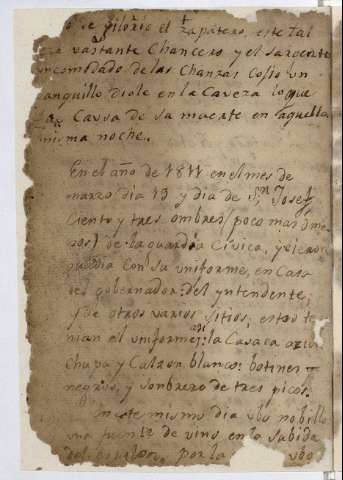 de Pilorio el zapatero, este tal
era vastante Chancero y el sargento
yncomodado de las Chanzas Cojio un
anquillo diole en la Caveza lo que
Causa de su muerte en aquella
misma noche.
En el año de 1811 en el mes de
marzo dia 19 y dia de Sn Josef
Ciento y tres ombres poco mas ome
nos) de la guardia Civica, y yci
guardia Con su uniforme, en Casa
del gobernador: del yntendente,
y de otros varios sitios, estos te
nian el uniforme: la Casaca azul
Chupa y Calzon blanco: botines
negros, y sombrero de tres picos.
En este mismo dia ubo nobillo
una fuente de vino en la subida
del por la ubo